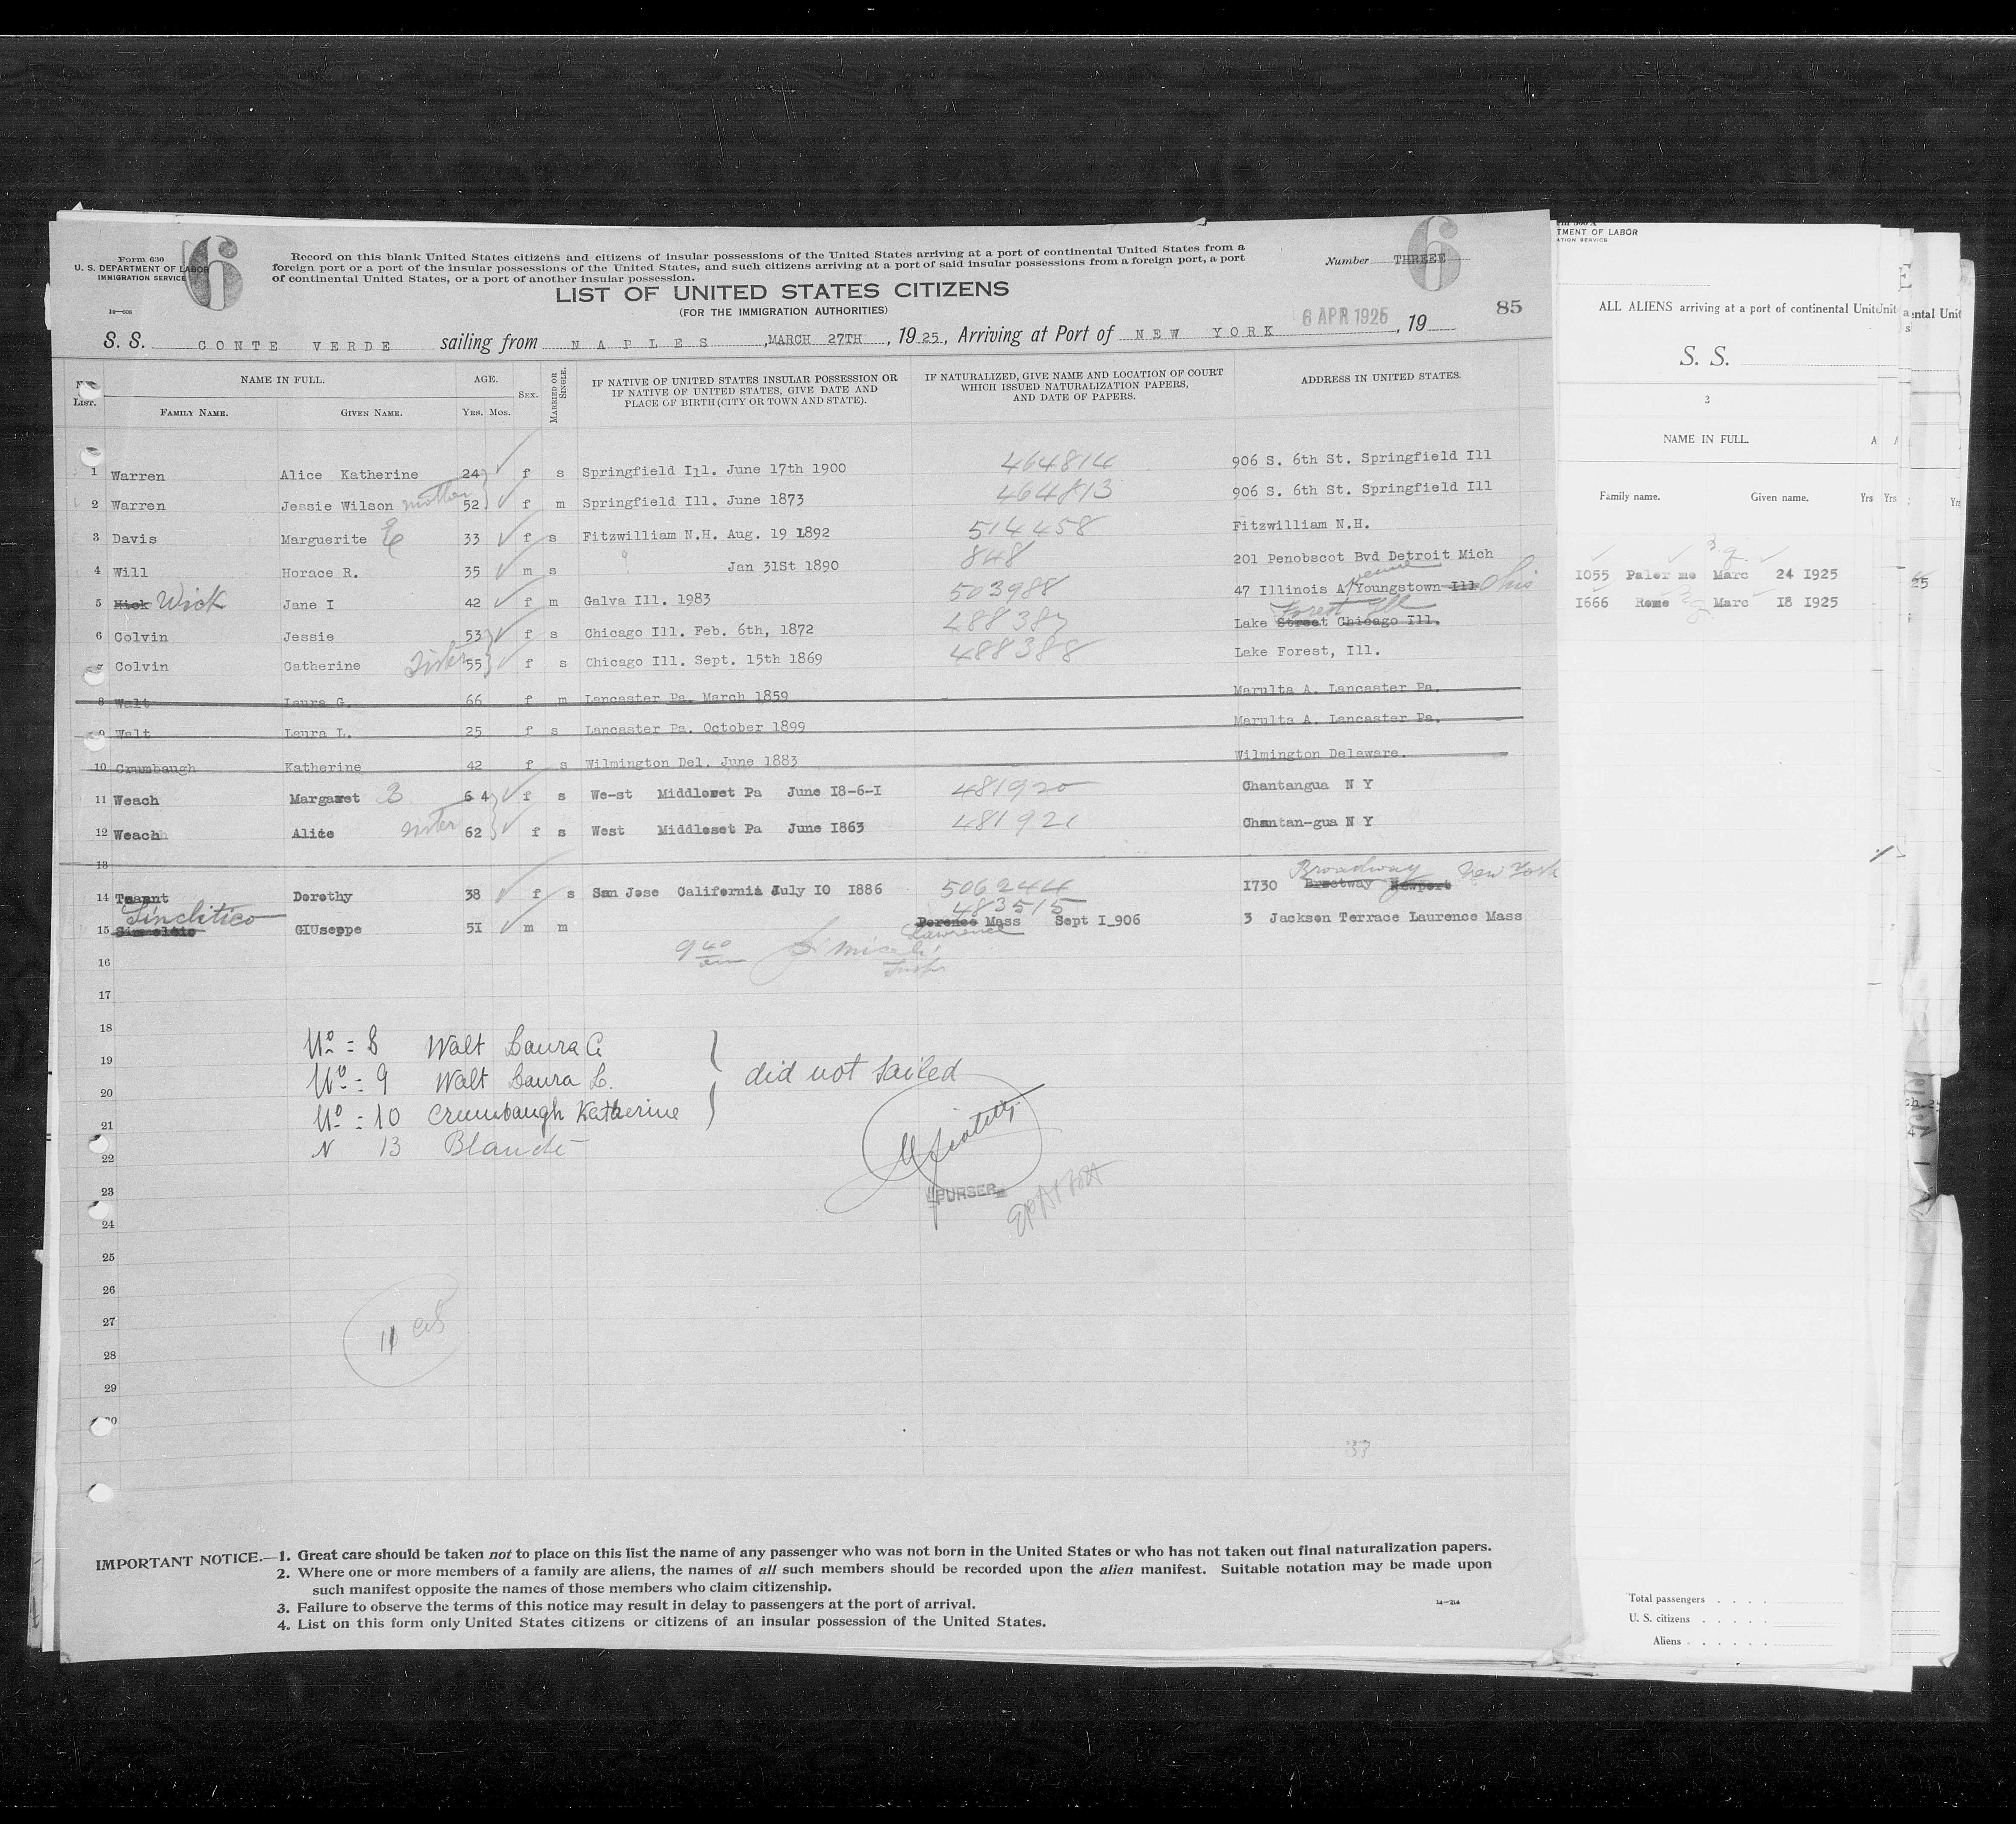 Form 630
U. S. DEPARTMENT OF LABOR
IMMIGRATION SERVICE
6
Record on this blank United States citizens and citizens of insular possessions of the United States arriving at a port of continental United States from a
foreign port or a port of the insular possessions of the United States, and such citizens arriving at a port of said insular possessions from a foreign port, a port
of continental United States, or a port of another insular possession.
Number THREEE
6
LIST OF UNITED STATES CITIZENS
(FOR THE IMMIGRATION AUTHORITIES)
85
S. S. CONTE VERDE sailing from NAPLES, MARCH 27TH, 1925, Arriving at Port of NEW YORK 6 APR 1925, 19
List.
NAME IN FULL.
FAMILY NAME. GIVEN NAME.
AGE.
YRS. MOS.
SEX.
MARRIED OR SINGLE.
IF NATIVE OF UNITED STATES INSULAR POSSESSION OR
IF NATIVE OF UNITED STATES, GIVE DATE AND
PLACE OF BIRTH (CITY OR TOWN AND STATE).
IF NATURALIZED, GIVE NAME AND LOCATION OF COURT
WHICH ISSUED NATURALIZATION PAPERS,
AND DATE OF PAPERS.
ADDRESS IN UNITED STATES.
1 Warren Alice Katherine 24 f s Springfield Ill. June 17th 1900 464814 906 S. 6th St. Springfield Ill
2 Warren Jessie Wilson mother 52 f m Springfield Ill. June 1873 464813 906 S. 6th St. Springfield Ill
3 Davis Marguerite E 33 f s Fitzwilliam N.H. Aug. 19 1892 514458 Fitzwilliam N.H.
4 Will Horace R. 35 m s Jan 31St 1890 848 201 Penobscot Bvd Detroit Mich
5 Hick Wick Jane I 42 f m Galva Ill. 1983 503988 47 Illinois Avenue Youngstown Ill Ohio
6 Colvin Jessie 53 f s Chicago Ill. Feb. 6th, 1872 488387 Lake Street Chicago Ill. Forest Ill
7 Colvin Catherine Sister 55 f s Chicago Ill. Sept. 15th 1869 488388 Lake Forest, Ill.
8 Walt Laura G. 66 f m Lancaster Pa. March 1859 Marulta A. Lancaster Pa.
9 Walt Laura L. 25 f s Lancaster Pa. October 1899 Marulta A. Lancaster Pa.
10 Crumbaugh Katherine 42 f s Wilmington Del. June 1883 Wilmington Delaware.
11 Weach Margaret B 64 f s We-st Middleset Pa June I8-6-I 481920 Chantangua N Y
12 Weach Alice sister 62 f s West Middleset Pa June I863 481921 Chantan-gua N Y
13
14 Tenant Dorothy 38 f s San Jose California July IO I886 506244 I730 Broadway New York
15 Sinclitico GIUseppe 5I m m 483515 Lawrence Mass Sept I_906 3 Jackson Terrace Laurence Mass
16 9 40 am
17
18
No = 8 Walt Laura G.
19
No = 9 Walt Laura L. did not sailed
20
No = 10 Crumbaugh Katherine
21
N 13 Blande
22
23
PURSER
24
25
26
27
11
28
29
30
37
IMPORTANT NOTICE.—1. Great care should be taken not to place on this list the name of any passenger who was not born in the United States or who has not taken out final naturalization papers.
2. Where one or more members of a family are aliens, the names of all such members should be recorded upon the alien manifest. Suitable notation may be made upon
such manifest opposite the names of those members who claim citizenship.
3. Failure to observe the terms of this notice may result in delay to passengers at the port of arrival.
4. List on this form only United States citizens or citizens of an insular possession of the United States.
TMENT OF LABOR
ATION SERVICE
ALL ALIENS arriving at a port of continental Unit
S. S.
3
NAME IN FULL.
Family name. Given name. Yrs
I055 Palermo Marc 24 I925
I666 Rome Marc I8 I925
Total passengers
U. S. citizens
Aliens